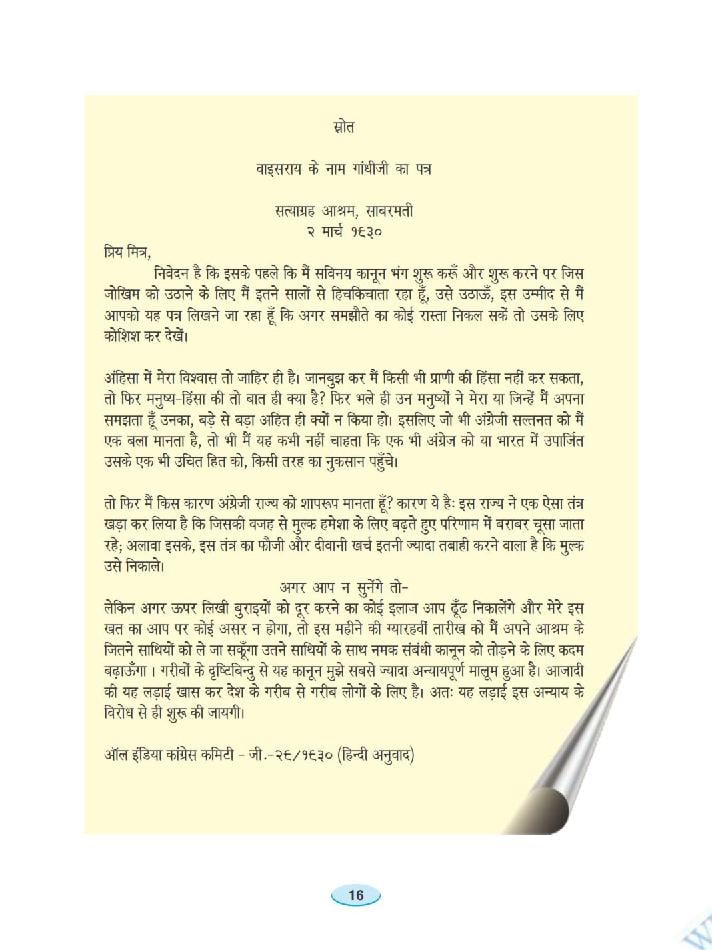 स्रोत
वाइसराय के नाम गांधीजी का पत्र
सत्याग्रह आश्रम, साबरमती
२ मार्च १९३०
प्रिय मित्र,
निवेदन है कि इसके पहले कि मैं सविनय कानून भंग शुरू करूँ और शुरू करने पर जिस
जोखिम को उठाने के लिए मैं इतने सालों से हिचकिचाता रहा हूँ, उसे उठाऊँ, इस उम्मीद से मैं
आपको यह पत्र लिखने जा रहा हूँ कि अगर समझौते का कोई रास्ता निकल सकें तो उसके लिए
कोशिश कर देखें।
अंहिसा में मेरा विश्वास तो जाहिर ही है। जानबुझ कर मैं किसी भी प्राणी की हिंसा नहीं कर सकता,
तो फिर मनुष्य-हिंसा की तो बात ही क्या है? फिर भले ही उन मनुष्यों ने मेरा या जिन्हें मैं अपना
समझता हूँ उनका, बड़े से बड़ा अहित ही क्यों न किया हो। इसलिए जो भी अंग्रेजी सल्तनत को मैं
एक बला मानता है, तो भी मैं यह कभी नहीं चाहता कि एक भी अंग्रेज को या भारत में उपार्जित
उसके एक भी उचित हित को, किसी तरह का नुकसान पहुँचे।
तो फिर मैं किस कारण अंग्रेजी राज्य को शापरूप मानता हूँ? कारण ये हैः इस राज्य ने एक ऐसा तंत्र
खड़ा कर लिया है कि जिसकी वजह से मुल्क हमेशा के लिए बढ़ते हुए परिणाम में बराबर चूसा जाता
रहे; अलावा इसके, इस तंत्र का फौजी और दीवानी खर्च इतनी ज्यादा तबाही करने वाला है कि मुल्क
उसे निकाले।
अगर आप न सुनेंगे तो-
लेकिन अगर ऊपर लिखी बुराइयों को दूर करने का कोई इलाज आप ढूँढ निकालेंगे और मेरे इस
खत का आप पर कोई असर न होगा, तो इस महीने की ग्यारहवीं तारीख को मैं अपने आश्रम के
जितने साथियों को ले जा सकूँगा उतने साथियों के साथ नमक संबंधी कानून को तोड़ने के लिए कदम
बढ़ाऊँगा । गरीबों के दृष्टिबिन्दु से यह कानून मुझे सबसे ज्यादा अन्यायपूर्ण मालूम हुआ है। आजादी
की यह लड़ाई खास कर देश के गरीब से गरीब लोगों के लिए है। अतः यह लड़ाई इस अन्याय के
विरोध से ही शुरू की जायगी।
ऑल इंडिया कांग्रेस कमिटी - जी.-२९/१९३० (हिन्दी अनुवाद)
16